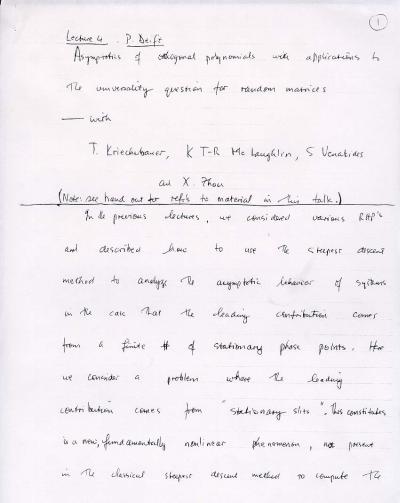 1
Lecture 4. P. Deift
Asymptotics of orthogonal polynomials with applications to
the universality question for random matrices
— with
T. Kriecherbauer, K T-R McLaughlin, S Venakides
and X. Zhou
(Note: see hand out for refs to material in this talk.)
In the previous lectures, we considered various RHP's
and described how to use the steepest descent
method to analyze the asymptotic behavior of systems
in the case that the leading contribution comes
from a finite # of stationary phase points. Here
we consider a problem where the leading
contribution comes from "stationary slits". This constitutes
is a new, fundamentally nonlinear phenomenon, not present
in the classical steepest descent method to compute the